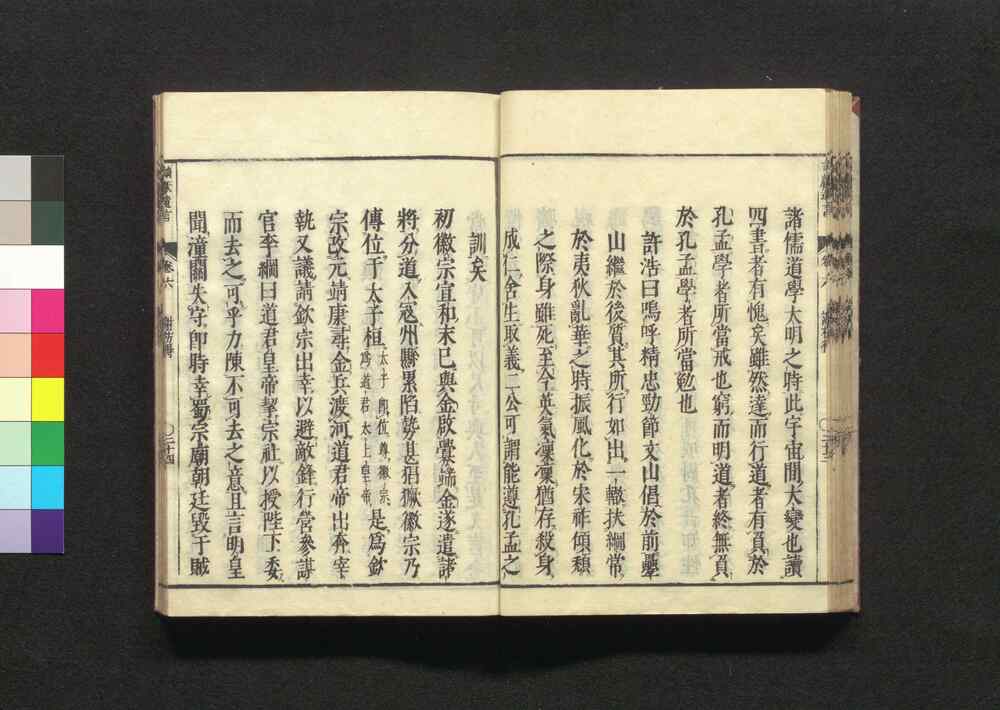 諸儒道學大明之時此宇宙間大變也讀
四書者有愧矣雖然達而行道者有負於
孔孟學者所當戒也窮而明道者終無負
於孔孟學者所當勉也
許浩曰嗚呼精忠勁節文山倡於前疊
山繼於後質其所行如出一轍扶綱常
於夷狄亂華之時振風化於宋祚傾頹
之際身雖死至今英氣凜凜猶存殺身
成仁舍生取義二公可謂能遵孔孟之
訓矣
初徽宗宣和末已與金啟釁端金遂遣諸
將分道入寇州縣累陷勢甚猖獗徽宗乃
傳位于太子桓太子卽位尊徽宗爲道君太上皇帝是爲欽
宗改元靖康尋金兵渡河道君帝出奔宰
執又議請欽宗出幸以避敵鋒行營參謀
官李綱曰道君皇帝挈宗社以授陛下委
而去之可乎力陳不可去之意且言明皇
聞潼關失守卽時幸蜀宗廟朝廷毀于賊
卷六
謝枋得
二十四